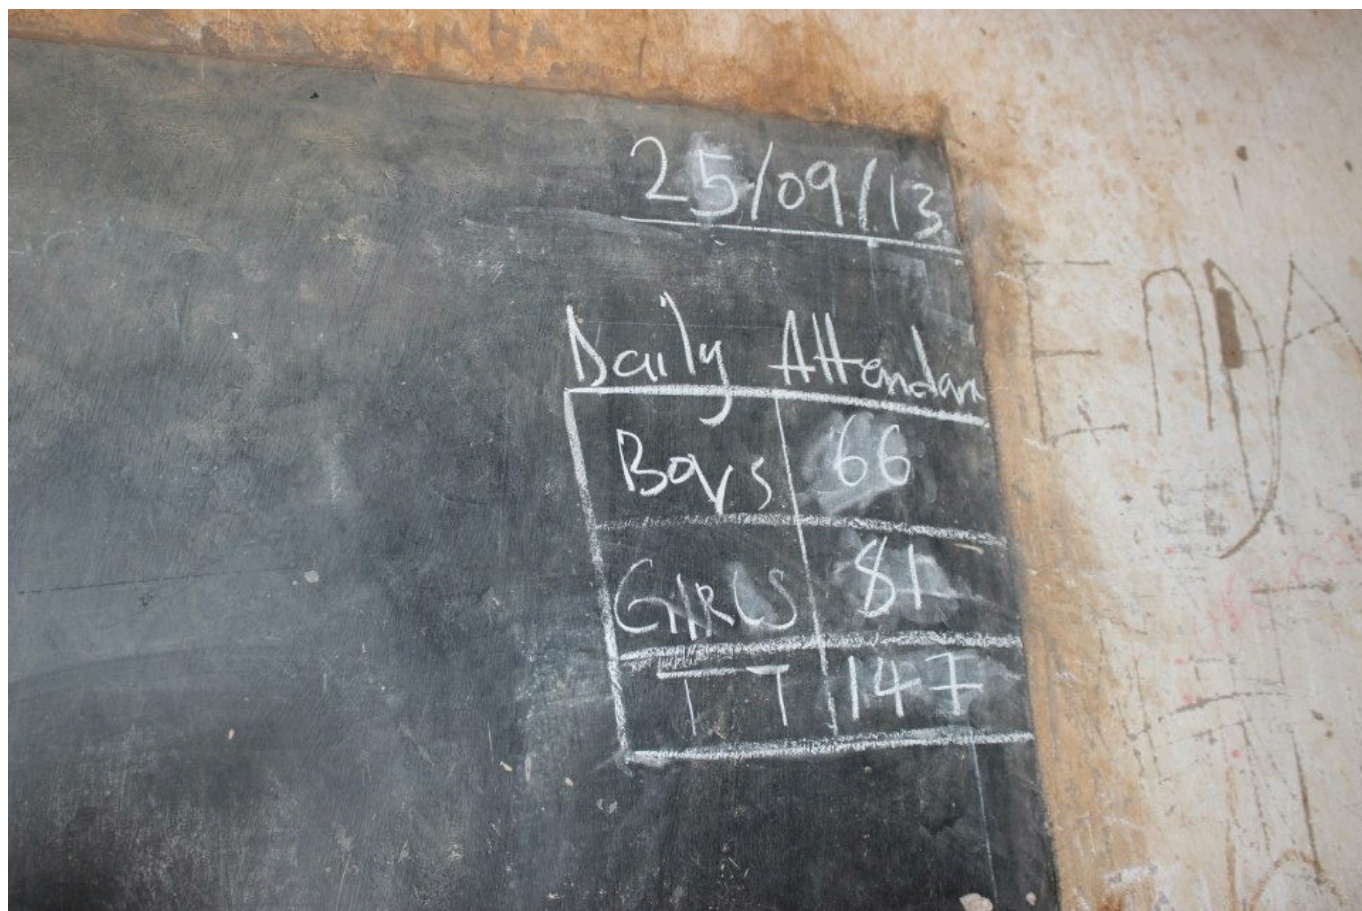 25/09/13
Daily Attendan
Boys 66
GIRLS 81
T T 147